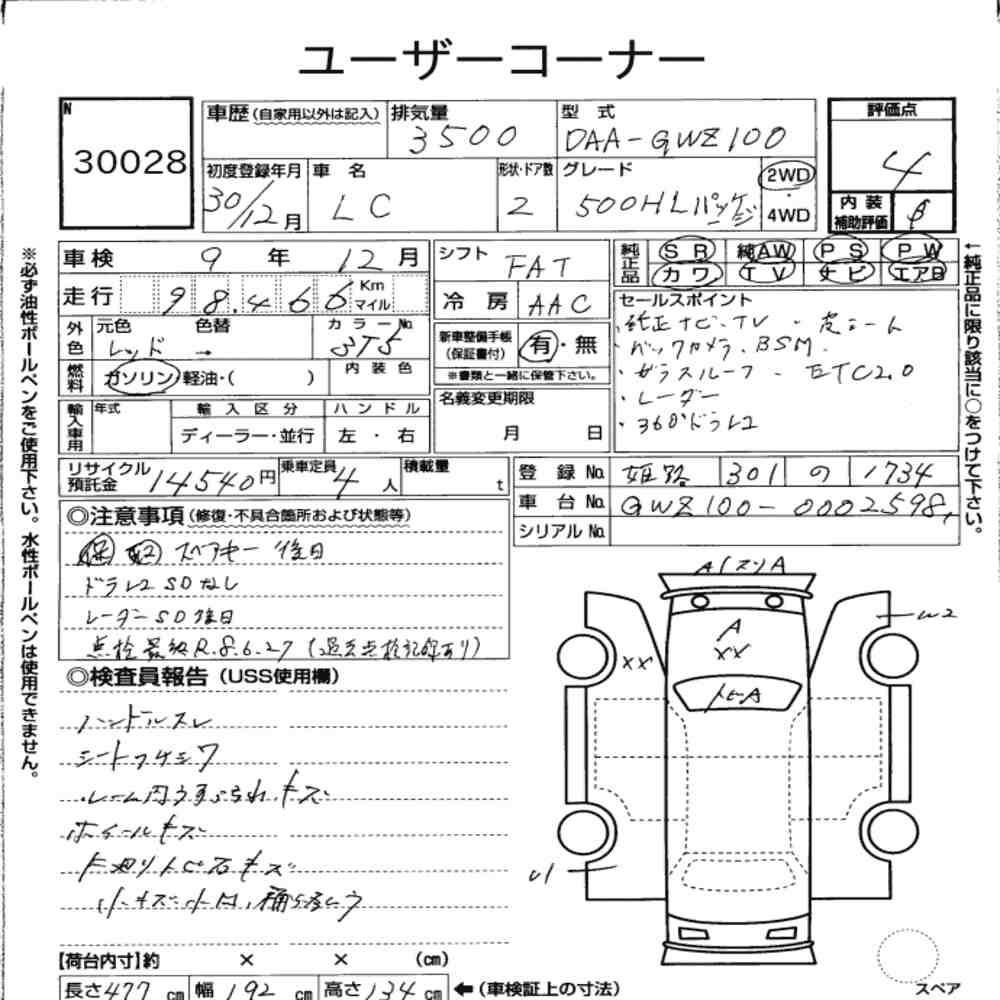 ユーザーコーナー
N
30028
車歴(自家用以外は記入)
排気量
3500
型式
DAA-GWZ100
評価点
4
初度登録年月
30/12月
車名
LC
形状・ドア数
2
グレード
500H Lパッケージ
2WD
・
4WD
内装
補助評価
B
車検 9年 12月
走行 98,466 Km
マイル
シフト
FAT
冷房 AAC
純正品
SR 純AW PS PW
カワ TV ナビ エアB
外色
元色 色替
レッド →
カラーNo.
3T5
燃料
ガソリン・軽油・( )
内装色
新車整備手帳
(保証書付)
有・無
※書類と一緒に保管下さい。
セールスポイント
・純正ナビ・TV ・皮シート
・バックカメラ・BSM
・ガラスルーフ ・ETC2.0
・レーダー
・360°ドラレコ
輸入車用
年式
輸入区分
ディーラー・並行
ハンドル
左・右
名義変更期限
月 日
リサイクル
預託金
14540円
乗車定員
4人
積載量
t
登録No. 姫路 301 の 1734
車台No. GWZ100-0002598
シリアルNo.
※必ず油性ボールペンをご使用下さい。水性ボールペンは使用できません。
←純正品に限り該当に○をつけて下さい。
◎注意事項(修復・不具合箇所および状態等)
スペアキー 後日
ドラレコSDなし
レーダーSD後日
点検最終R.8.6.27(過去点検記録あり)
◎検査員報告(USS使用欄)
ハンドルスレ
シートスレシワ
ホイールキズ
A
XX
XX
W2
U1
【荷台内寸】約 × × (cm)
長さ477cm 幅192cm 高さ134cm ←(車検証上の寸法)
スペア